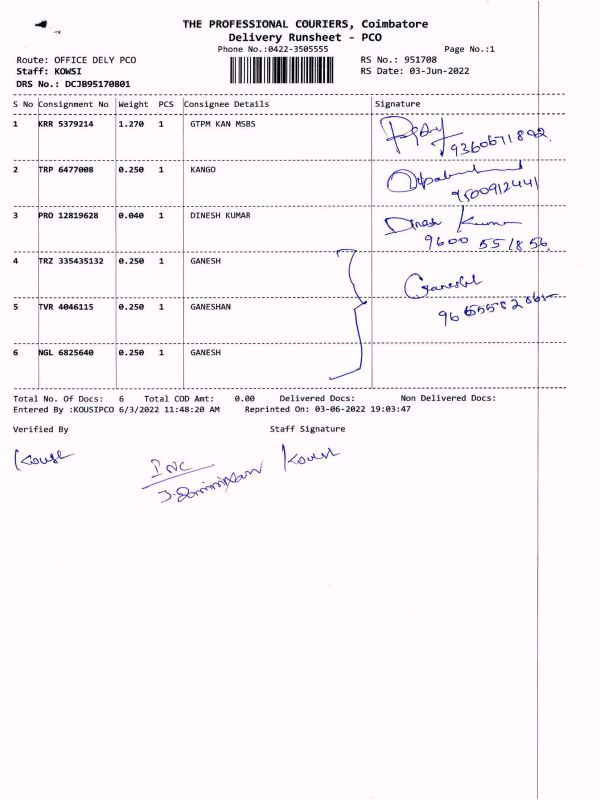 THE PROFESSIONAL COURIERS, Coimbatore
Delivery Runsheet - PCO
Phone No.:0422-3505555 Page No.:1
Route: OFFICE DELY PCO RS No.: 951708
Staff: KOWSI RS Date: 03-Jun-2022
DRS No.: DCJB95170801
S No Consignment No Weight PCS Consignee Details Signature
1 KRR 5379214 1.270 1 GTPM KAN MSBS
9360671892
2 TRP 6477008 0.250 1 KANGO
9500912441
3 PRO 12819628 0.040 1 DINESH KUMAR Dinesh Kumar
9600 551856
4 TRZ 335435132 0.250 1 GANESH
Ganesh
5 TVR 4046115 0.250 1 GANESHAN
6 NGL 6825640 0.250 1 GANESH
Total No. Of Docs: 6 Total COD Amt: 0.00 Delivered Docs: Non Delivered Docs:
Entered By :KOUSIPCO 6/3/2022 11:48:20 AM Reprinted On: 03-06-2022 19:03:47
Verified By Staff Signature